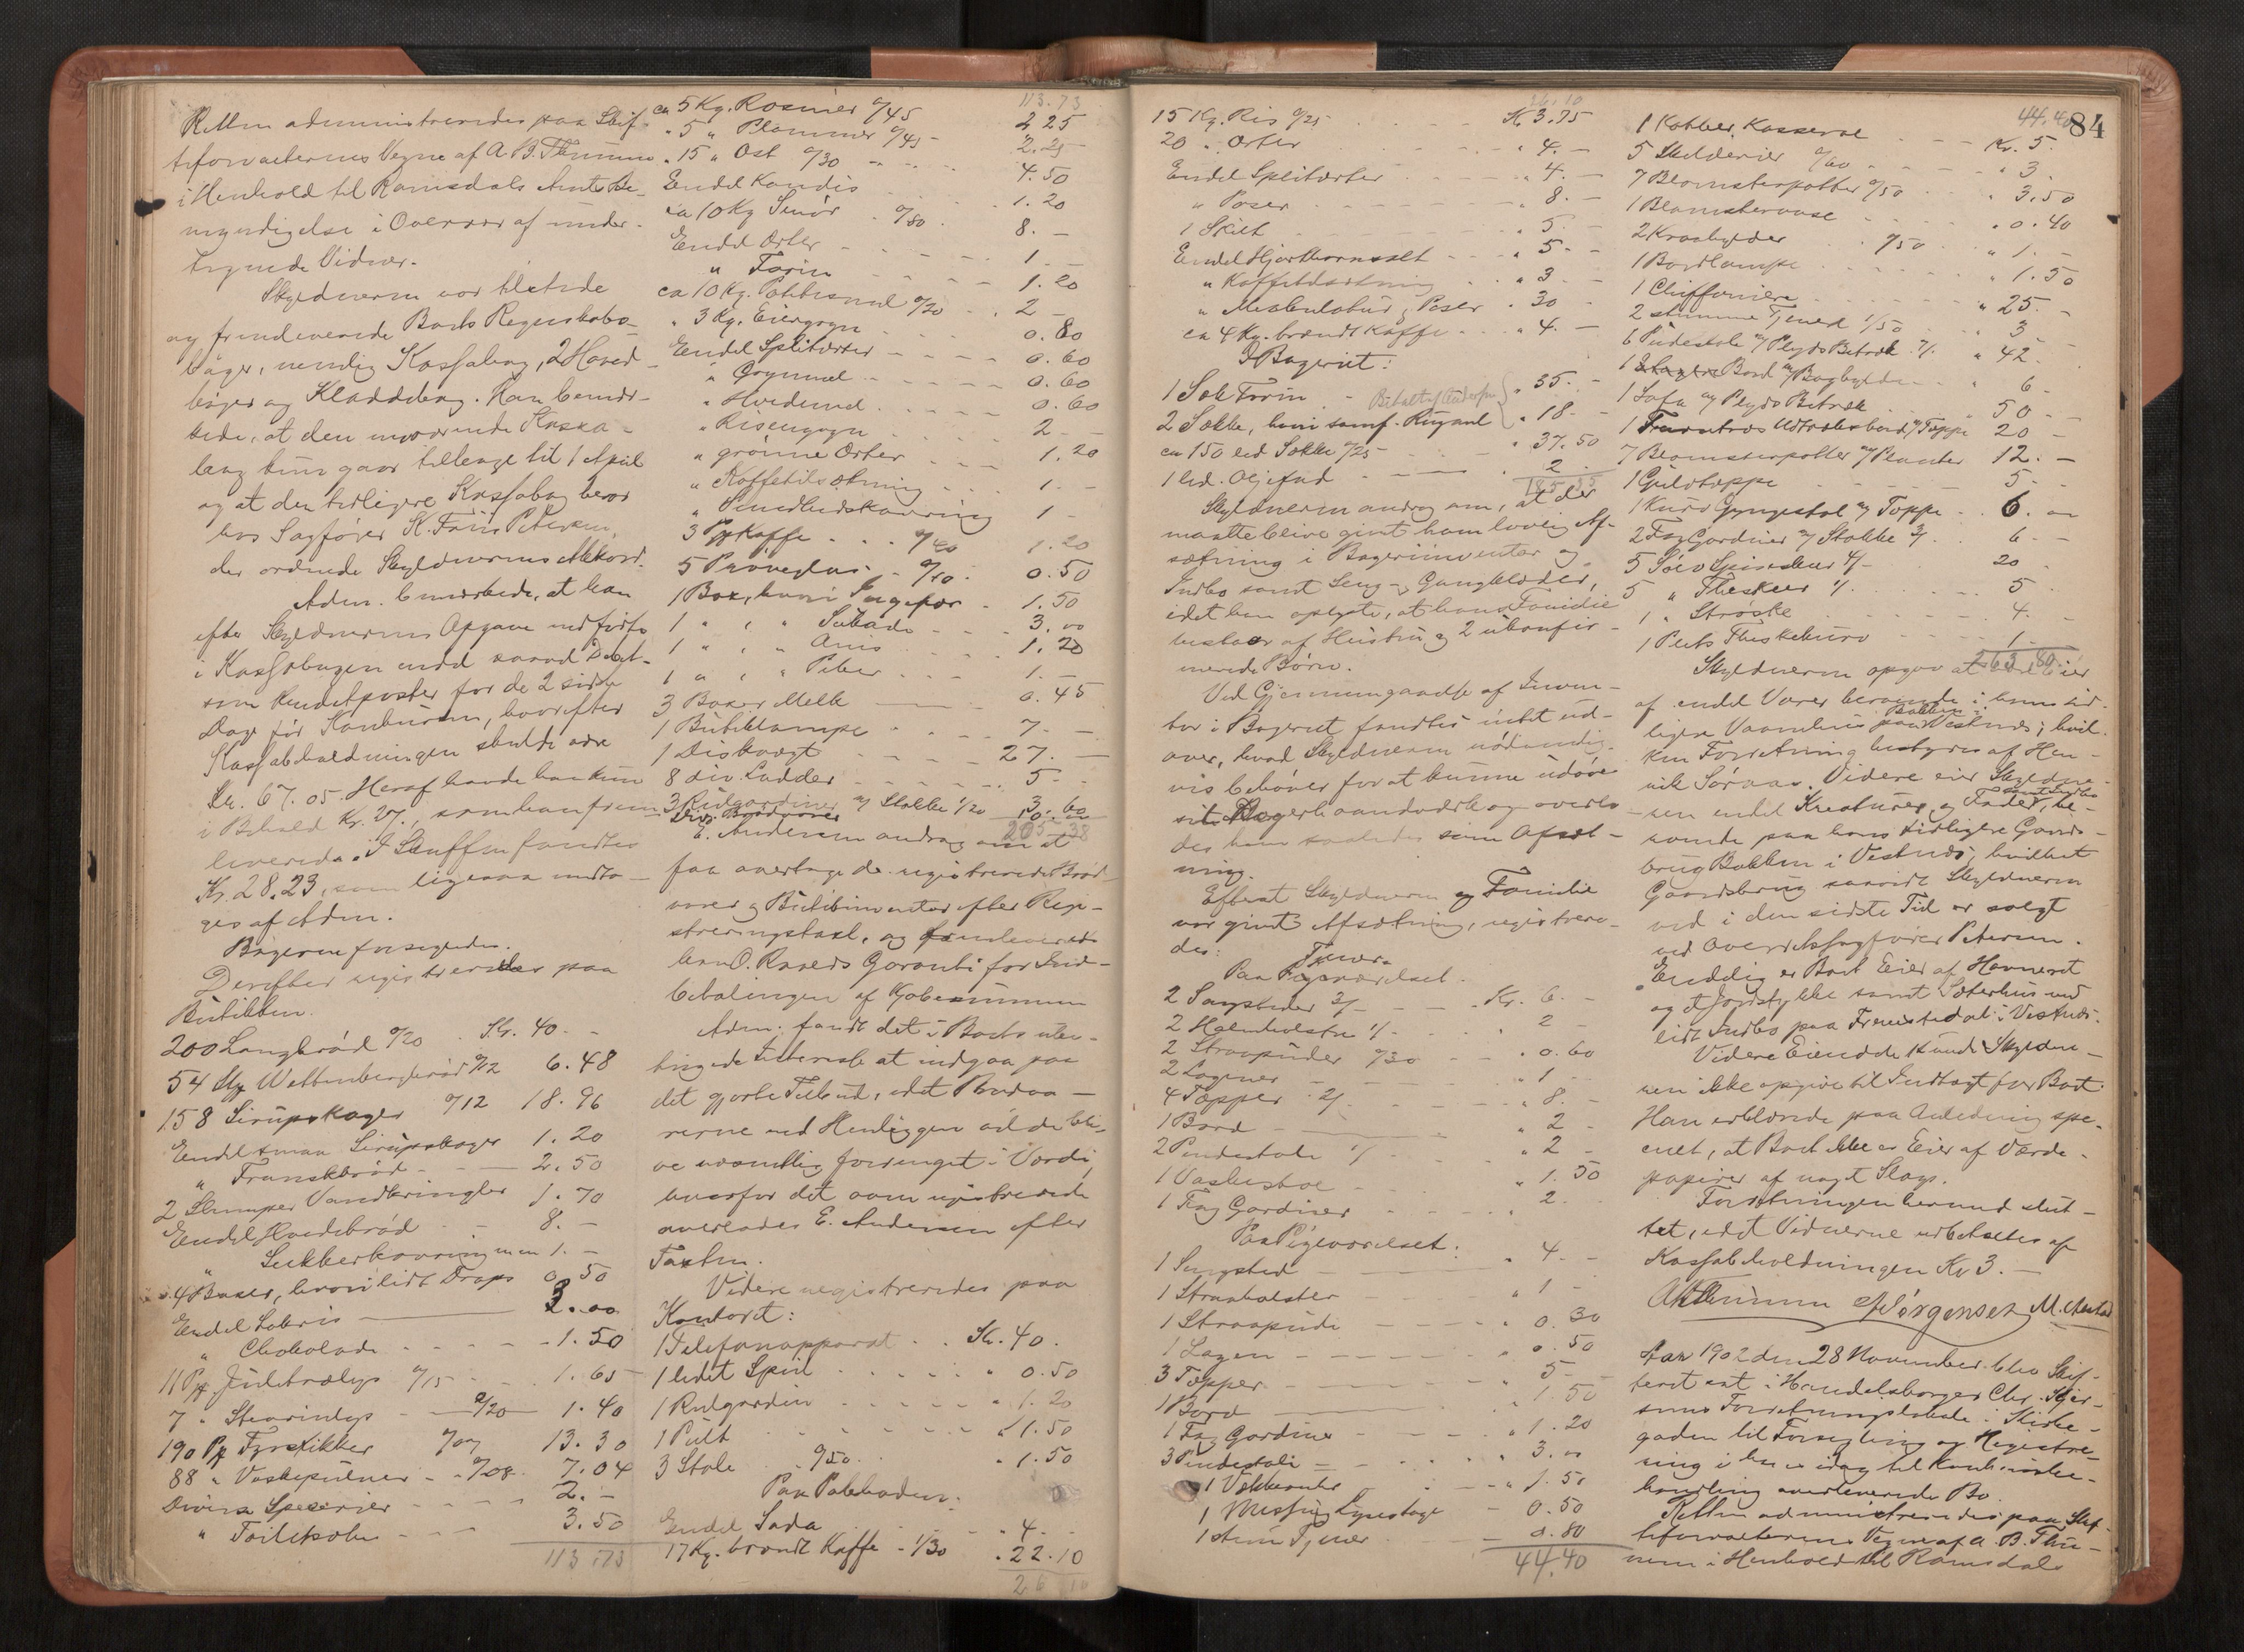 Retten administreredes paa Skif-
teforvalterens Vegne af A. B. Thinnem
i Henhold til Romsdals Amts Be-
myndigelse i Overvær af under-
tegnede Vidner.
Skyldneren var tilstede
og fremleverede Boets Regnskabs-
bøger, nemlig Kassabog, 2 Hoved-
bøger og Kladdebog. Han bemær-
kede, at den nuværende Kassa-
bog kun gaar tilbage til 1 April
og at den tidligere Kassabog beror
hos Sagfører K. Friis Petersen,
der ordnede Skyldnerens Akkord.
Adm. bemærkede, at han
efter Skyldnerens Opgave indførte
i Kassabogen endel saavel Debet-
som Kreditposter for de 2 sidste
Dage før Konkursen, hvorefter
Kassabeholdningen skulde være
Kr. 67.05. Heraf havde han kun
i Behold Kr. 27., som han frem-
leverede. I Skuffen fandtes
Kr. 28.23, som ligesaa modto-
ges af Adm.
Bøgerne forsegledes.
Derefter registreredes paa
Butikken.
200 Langbrød a/20 . Kr. 40. -
54 Stk Wittenbergbrød a/12 6.48
158 Sirupskager a/12 18.96
Endel smaa Sirupskager 1.20
" Franskbrød - - 2.50
2 Slumper Vandkringler 1.70
Endel Hvedebrød - 8. -
" Sukkerkavringer 1. -
4 Baxer, hvori lidt Drops 0.50
Endel Lakris 3.00
" Chokolade - - - 1.50
11 Pk Juletrælys a/15 - - 1.65
7 " Stearinlys - a/20 1.40
190 Pk Fyrstikker a/07 13.30
88 " Vaskepulver - a/08 7.04
Diverse Speserier - - - 2. -
" Toiletsæbe - - - 3.50
113.73
113.73
ca 5 Kg. Rosiner a/45 2.25
" 5 " Plommer a/45 - 2.25
" 15 " Ost a/30 - - 4.50
Endel Kandis . . 1.20
ca 10 Kg Smør . a/80 . 8. -
Endel Erter - - - 1. -
" Farin - - - 1.20
ca 10 Kg. Potetesmel a/20 - . 2 -
" 3 Kg. Eiergryn - - . 0.80
Endel Splitærter - - - - 0.60
" Grynmel - - - - 0.60
" Hvedemel . . - - 0.60
" Risengryn . . - - 2 - -
" grønne Erter - - - 1.20
" Kaffetilsætning - - - 1. -
" Smedbudskavring 1 -
3 Pk Kaffe . . . a/40 1.20
5 Prøveglas . - a/10 . 0.50
1 Box, hvori Ingefær - 1.50
1 " , " Sukade - - - 3.00
1 " , " Anis - - - 1.20
1 " , " Peber - - - 1. -
3 Boxer Melk - - - 0.45
1 Butiklampe . - - 7. -
1 Diskvægt - - - - 27. -
8 div. Ladder - - - - 5 - -
3 Rulgardiner m/ Stokke 1/20 3.60
Div. Brødvarer 10. -
205.38
E. Andersen androg om at
faa overtage de registrerede Brød-
varer og Butikinventar efter Regi-
streringstaxt, og fremleverede
han O. Raneds Garanti for Ind-
betalingen af Kjøbesummen
Adm. fandt det i Boets uten-
tingede Interesse at indgaa paa
det gjorte Tilbud, idet Brødva-
rerne ved Henliggen vilde bli-
ve væsentlig forringet i Værdi,
hvorfor det som registrerede
overlodes E. Andersen efter
Taxten.
Videre registreredes paa
Kontoret:
1 Telefonapparat . . Kr. 40.
1 lidet Speil . . . . " 0.50
1 Rulgardin . . . . " 1.20
1 Pult . . . . . " 1.50
3 Stole . a/50 . . " 1.50
Paa Pakboden:
Endel Soda . . . " 4. -
17 Kg. brændt Kaffe - 1/30 . 22.10
26.10
26.10
15 Kg. Ris a/25 - . - - Kr 3.75
20 " Erter - - - " 4. -
Endel Splitærter . - - - " 4. -
" Poser . - - - " 8. -
1 Skilt - - - - " 5 -
Endel Hjortetornsalt - - - " 5 -
" Kaffetilsætning - - " 3 -
" Makulatur, Poser . 30 -
ca 4 Kg. brændt Kaffe - - " 4. -
I Bageriet:
1 Sæk Farin . - Betalt af Andersen " 35. -
2 Sække, hvori samf. Rugmel " 18 -
ca 150 led. Sække a/25 - " 37.50
1 led. Oljefad - - - . 2 .
185.35
Skyldneren androg om, at der
maatte blive givet ham lovlig Af-
sætning i Bageriinventar og
Indbo samt Seng- og Gangklæder,
idet han oplyste, at hans Familie
bestaar af Hustru og 2 ukonfir-
merede Børn.
Ved Gjennemgaaelse af Inven-
tar i Bageriet fandtes intet ud-
over, hvad Skyldneren nødvendig-
vis behøver for at kunne udøve
sit Bagerhaandværk og overlo-
des ham saaledes som Afsæt-
ning.
Efterat Skyldneren og Familie
var givet Afsætning, registrere-
des:
Paa Tjenerværelset.
2 Sengsteder 3/ - - - Kr. 6. -
2 Halmbolstre 1/ - - . 2 -
2 Straapuder a/30 - - . 0.60
2 Lagener - - - " 1 -
4 Tæpper . 2/ . - - - " 8. -
1 Bord - - " 2 -
2 Pindestole 1/ - - " 2 -
1 Vaskestol - - - " 1.50
1 Fag Gardiner - - - . 2. -
Paa Pigeværelset:
1 Sengsted - - " 4 -
1 Straabolster - - " 1 -
1 Straapude - - - " 0.30
1 Lagen - - - - " 0.50
3 Tæpper - - - " 5 -
1 Bord - - " 1.50
1 Fag Gardiner - - - " 1.20
3 Pindestole - - - " 3.00
1 Vækkeruhr - - " 1.50
1 Messing Lysestage - 0.50
1 stum Tjener - - 0.80
44.40
44.40
84
1 Kobber. Kasserol - - Kr. 5.
5 Skilderier a/60 . . . " 3.
7 Blomsterpotter a/50 . . " 3.50
1 Blomstervase . . . " 0.40
2 Kroshylder . a/50 . . " 1. -
1 Bordlampe . . . . . " 1.50
1 Chiffoniere . . . . . " 25. -
2 stumme Tjenere 1/50 . . " 3 -
6 Pudestole m/ Plyds Betræk 7/. " 42.
1 Bord m/ Boghylde - - " 6 -
1 Sofa m/ Plyds Betræk . . 50 -
1 Udtræksbord m/ Tæppe 20 -
7 Blomsterpotter m/ Planter 12. -
1 Gulvtæppe . . . . 5 -
1 Kurv Gyngestol m/ Tæppe . . 6. -
2 Fag Gardiner m/ Stokke 3/ . . 6 -
5 Sølv Spiseskeer 4/ - 20 -
5 " Theskeer 1/. - - 5 .
1 " Strøske . - - - 4. -
1 Plets Fluskekurv - - - 1. -
263.80
Skyldneren opgav at være Eier
af endel Varer beroende i hans tid-
ligere Vaanhus paa Bakken i Vestnes, hvil-
ken Forretning bestyres af Hen-
rik Søraas. Videre eier Skyldne-
ren endel Kreaturer og Foder, samt Indbo be-
roende paa hans tidligere Gaards-
brug Bakken i Vestnes, hvilket
Gaardsbrug saavidt Skyldneren
ved i den sidste Tid er solgt
ved Overretssagfører Petersen.
Endelig er Boet Eier af Havneret
og et Jordstykke samt Sæterhus med
lidt Indbo paa Tresfjord i Vestnes.
Videre Eiendele kunde Skyldne-
ren ikke opgive til Indtægt for Boet.
Han erklærede paa Anledning spe-
cielt, at Boet ikke er Eier af Værdi-
papirer af noget Slags.
Forretningen hermed slut-
tet, idet Vidnerne udbetaltes af
Kassabeholdningen Kr 3. -
A B Thinnem A Jørgensen M. Aarstad
Aar 1902 den 28 November blev Skif-
teret sat i Handelsborger Chr. Stjer-
sens Forretningslokale i Kirke-
gaden til Forsegling og Registre-
ring i hans idag til Konkursbe-
handling overleverede Bo.
Retten administreredes paa Skif-
teforvalterens Vegne af A. B. Thin-
nem i Henhold til Romsdals